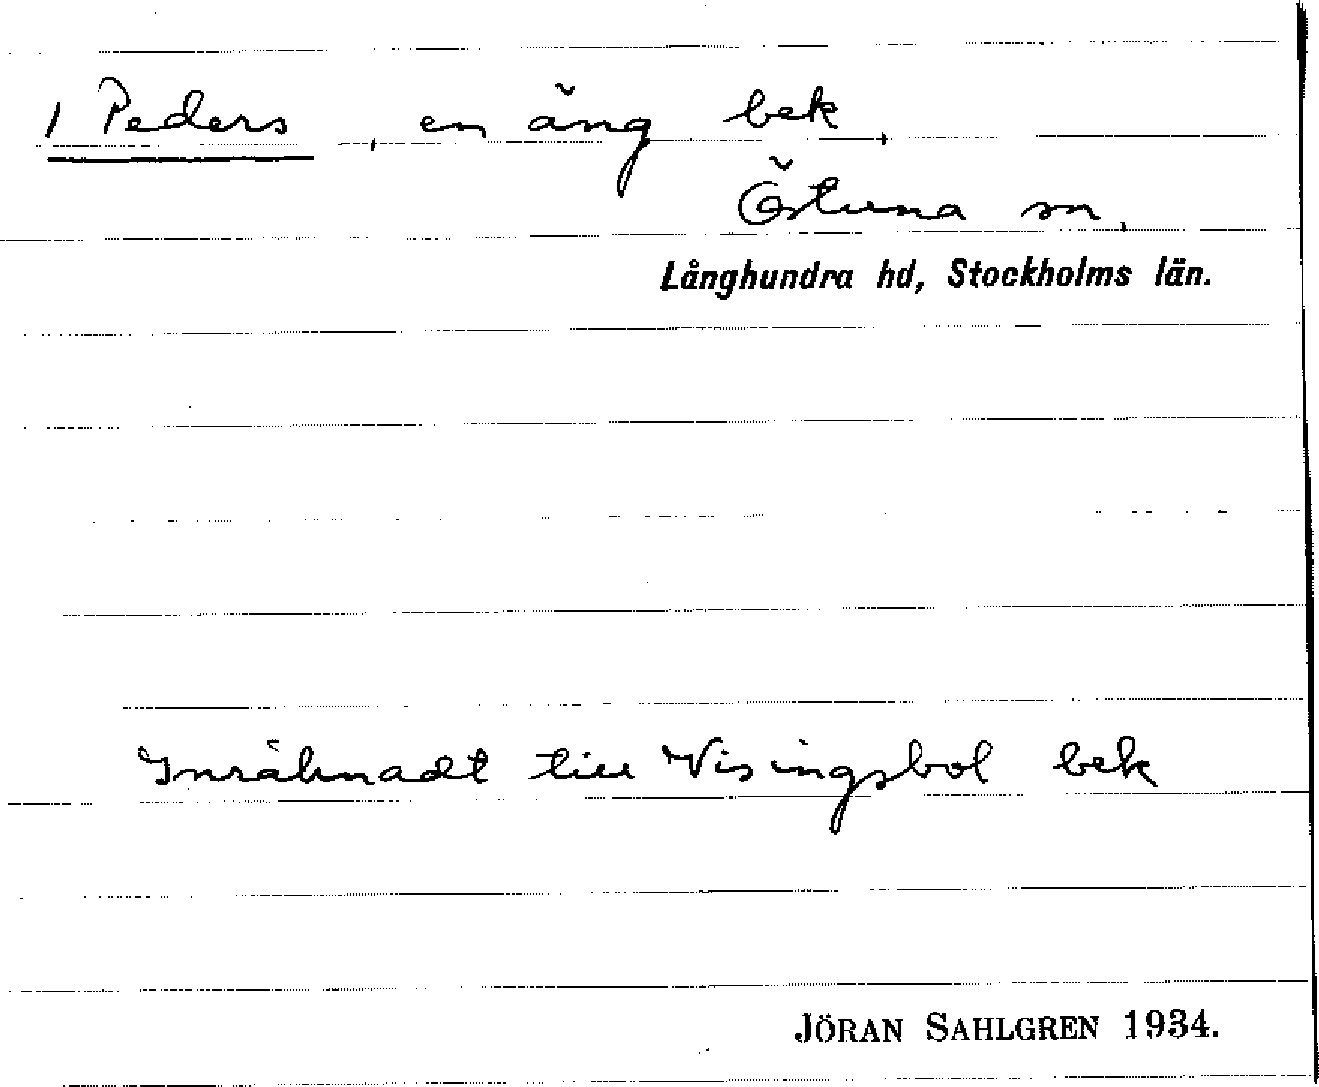 1 Peders, en äng bek,
Östuna sn,
Långhundra hd, Stockholms län.
Inräknadt till Visingsbol bek
JÖRAN SAHLGREN 1934.